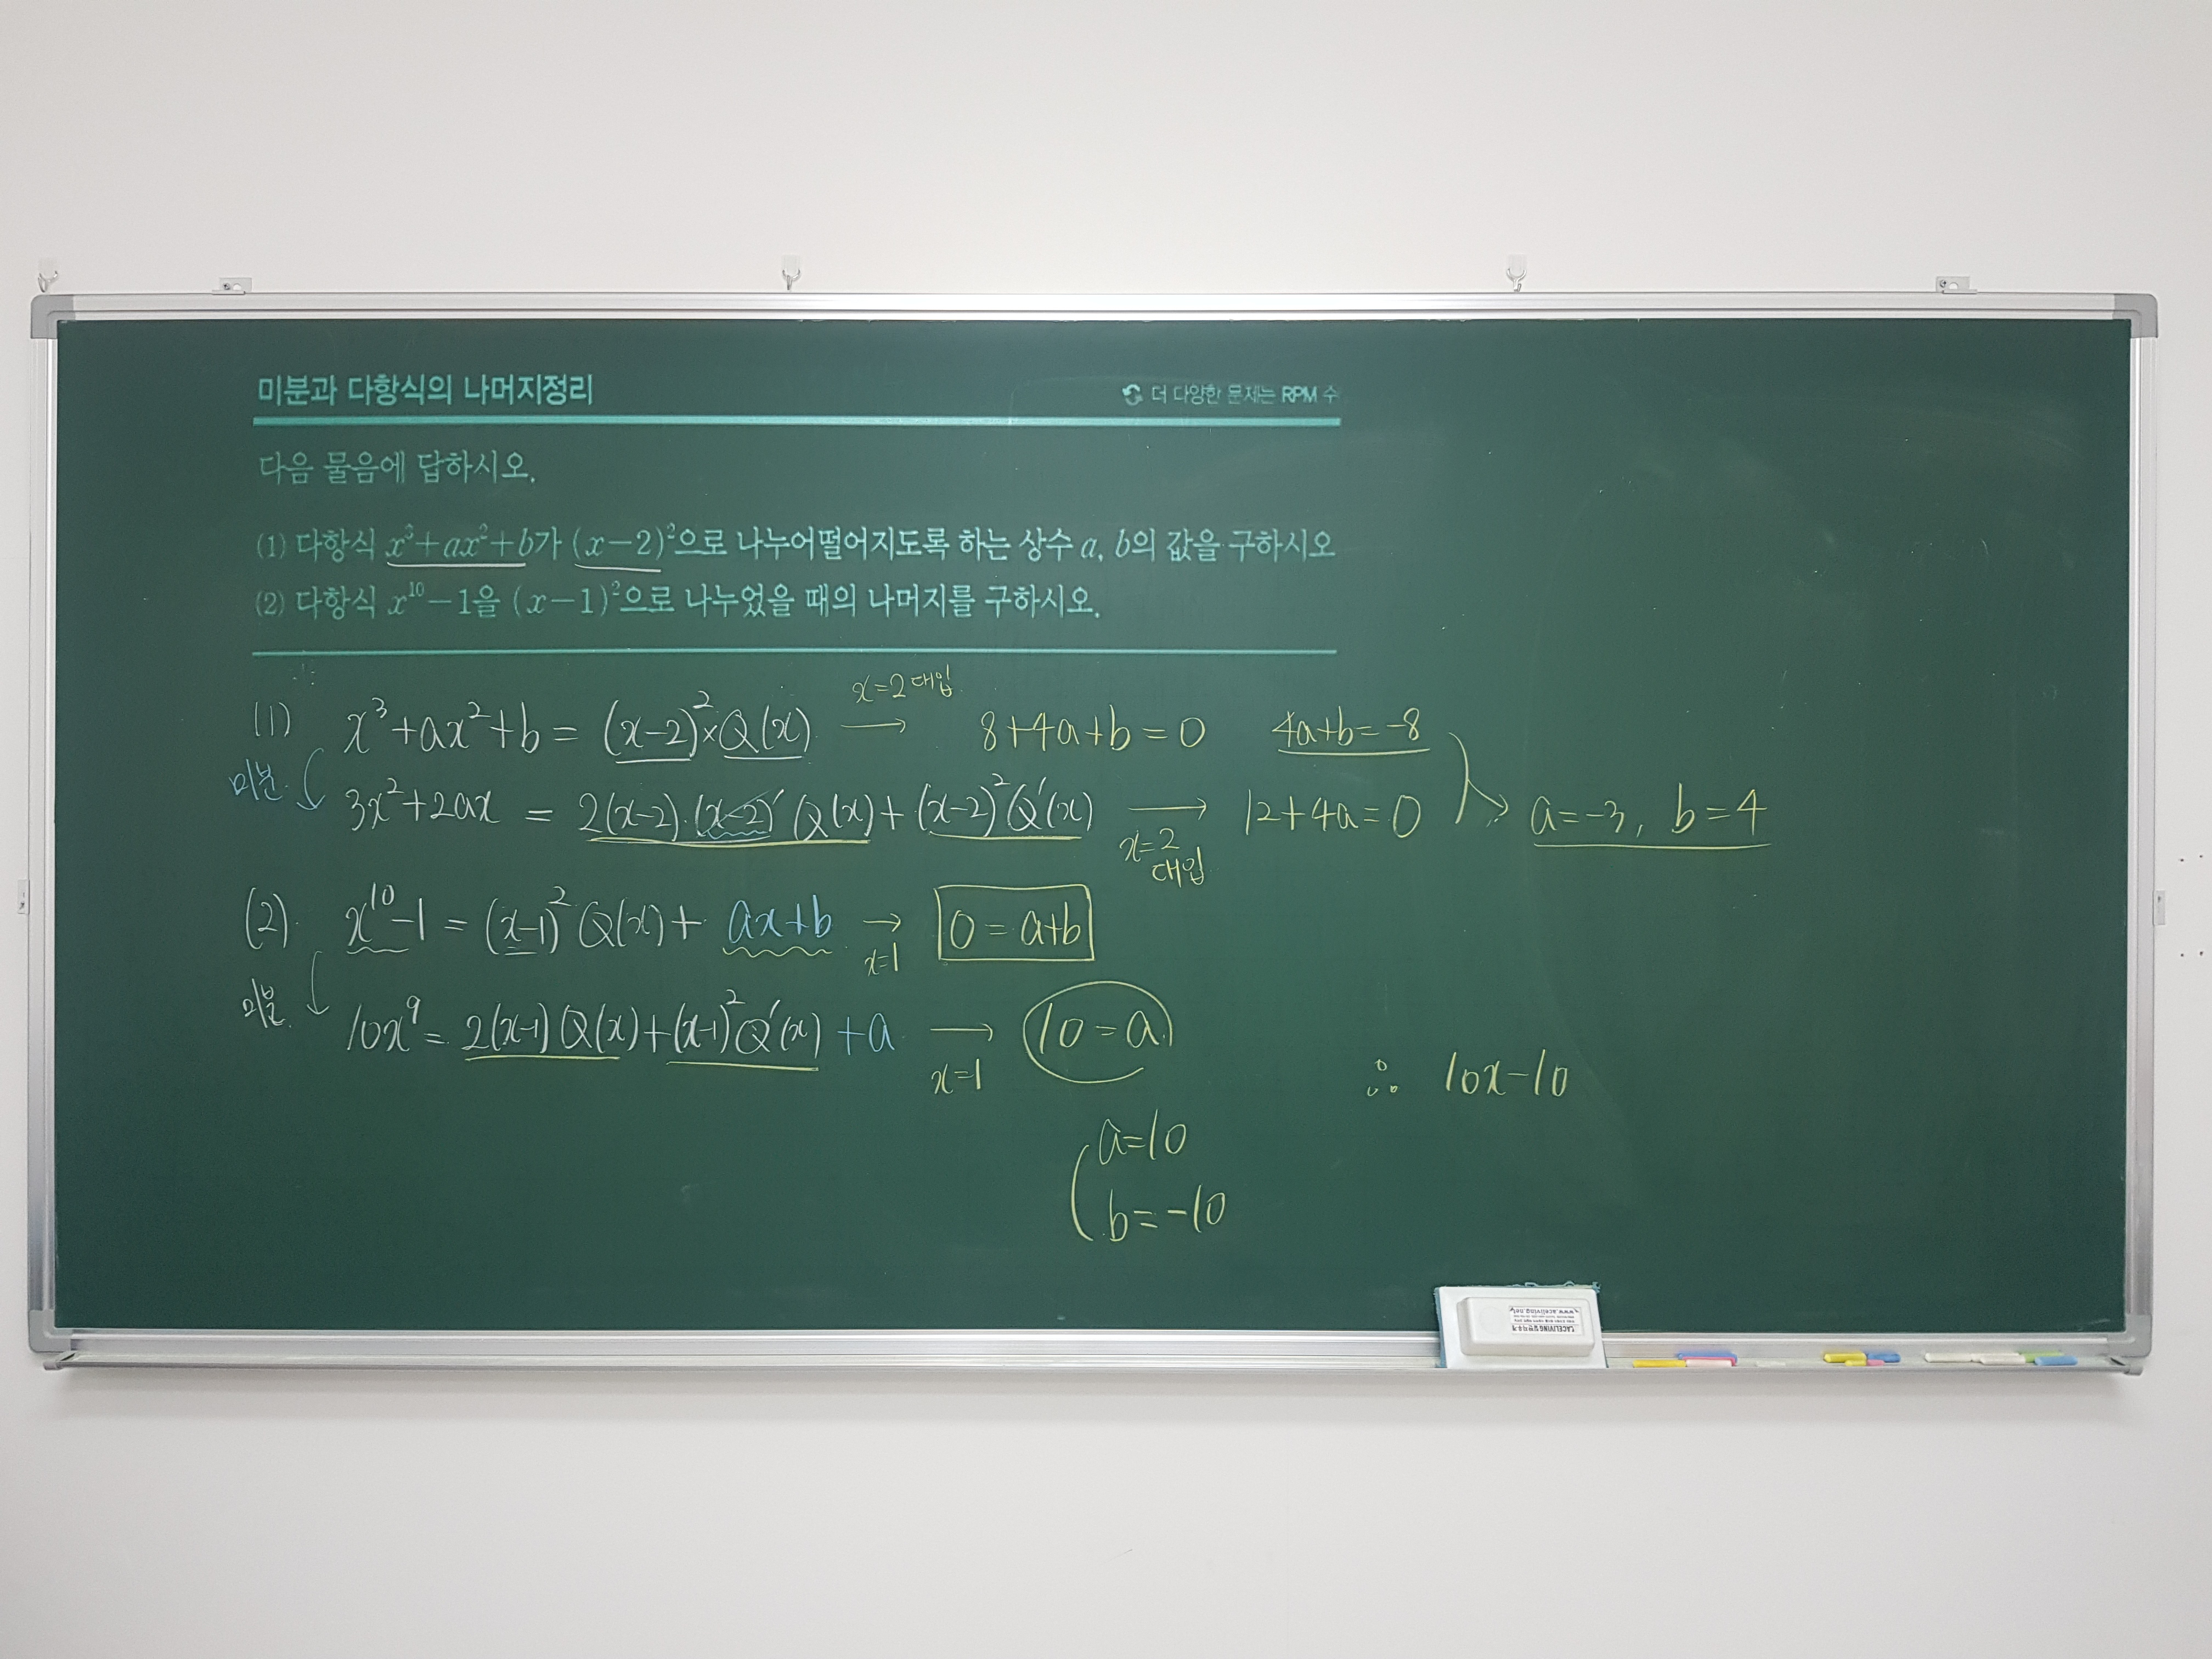 미분과 다항식의 나머지정리 더 다양한 문제는 RPM 수
다음 물음에 답하시오.
(1) 다항식 x³+ax²+b가 (x-2)²으로 나누어떨어지도록 하는 상수 a, b의 값을 구하시오
(2) 다항식 x¹⁰-1을 (x-1)²으로 나누었을 때의 나머지를 구하시오.
(1) x³+ax²+b = (x-2)²×Q(x) → x=2 대입 8+4a+b=0 4a+b=-8
미분 3x²+2ax = 2(x-2)·(x-2)′Q(x)+(x-2)²Q′(x) → x=2 대입 12+4a=0 → a=-3, b=4
(2). x¹⁰-1 = (x-1)²Q(x)+ ax+b → x=1 0=a+b
미분. 10x⁹ = 2(x-1)Q(x)+(x-1)²Q′(x)+a → x=1 10=a
∴ 10x-10
a=10
b=-10
www.aceliving.net